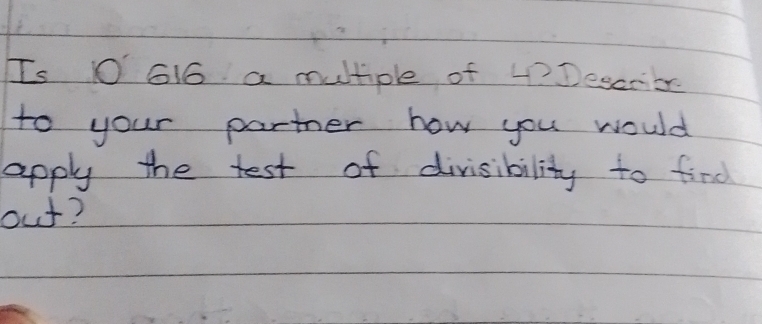 Is 10 616 a multiple of 4? Describe
to your partner how you would
apply the test of divisibility to find
out?